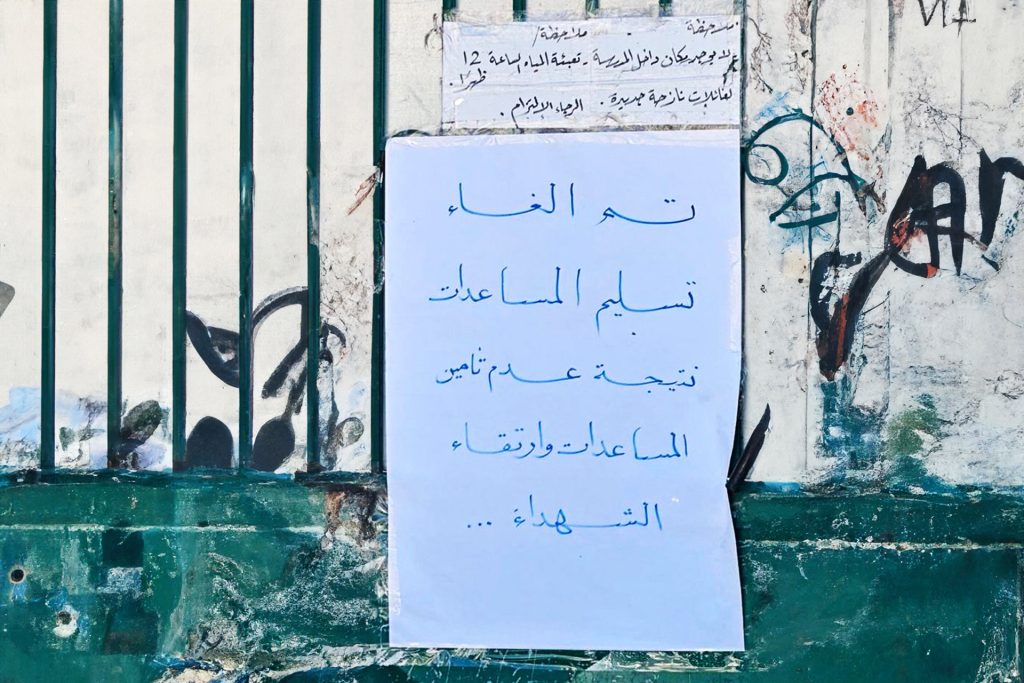 ملاحظة ملاحظة/
لا يوجد مكان داخل المدرسة - تعبئة المياه الساعة 12 ظهرًا.
لعائلات نازحة جديدة. الرجاء الالتزام.
تم الغاء
تسليم المساعدات
نتيجة عدم تامين
المساعدات وارتقاء
الشهداء ...